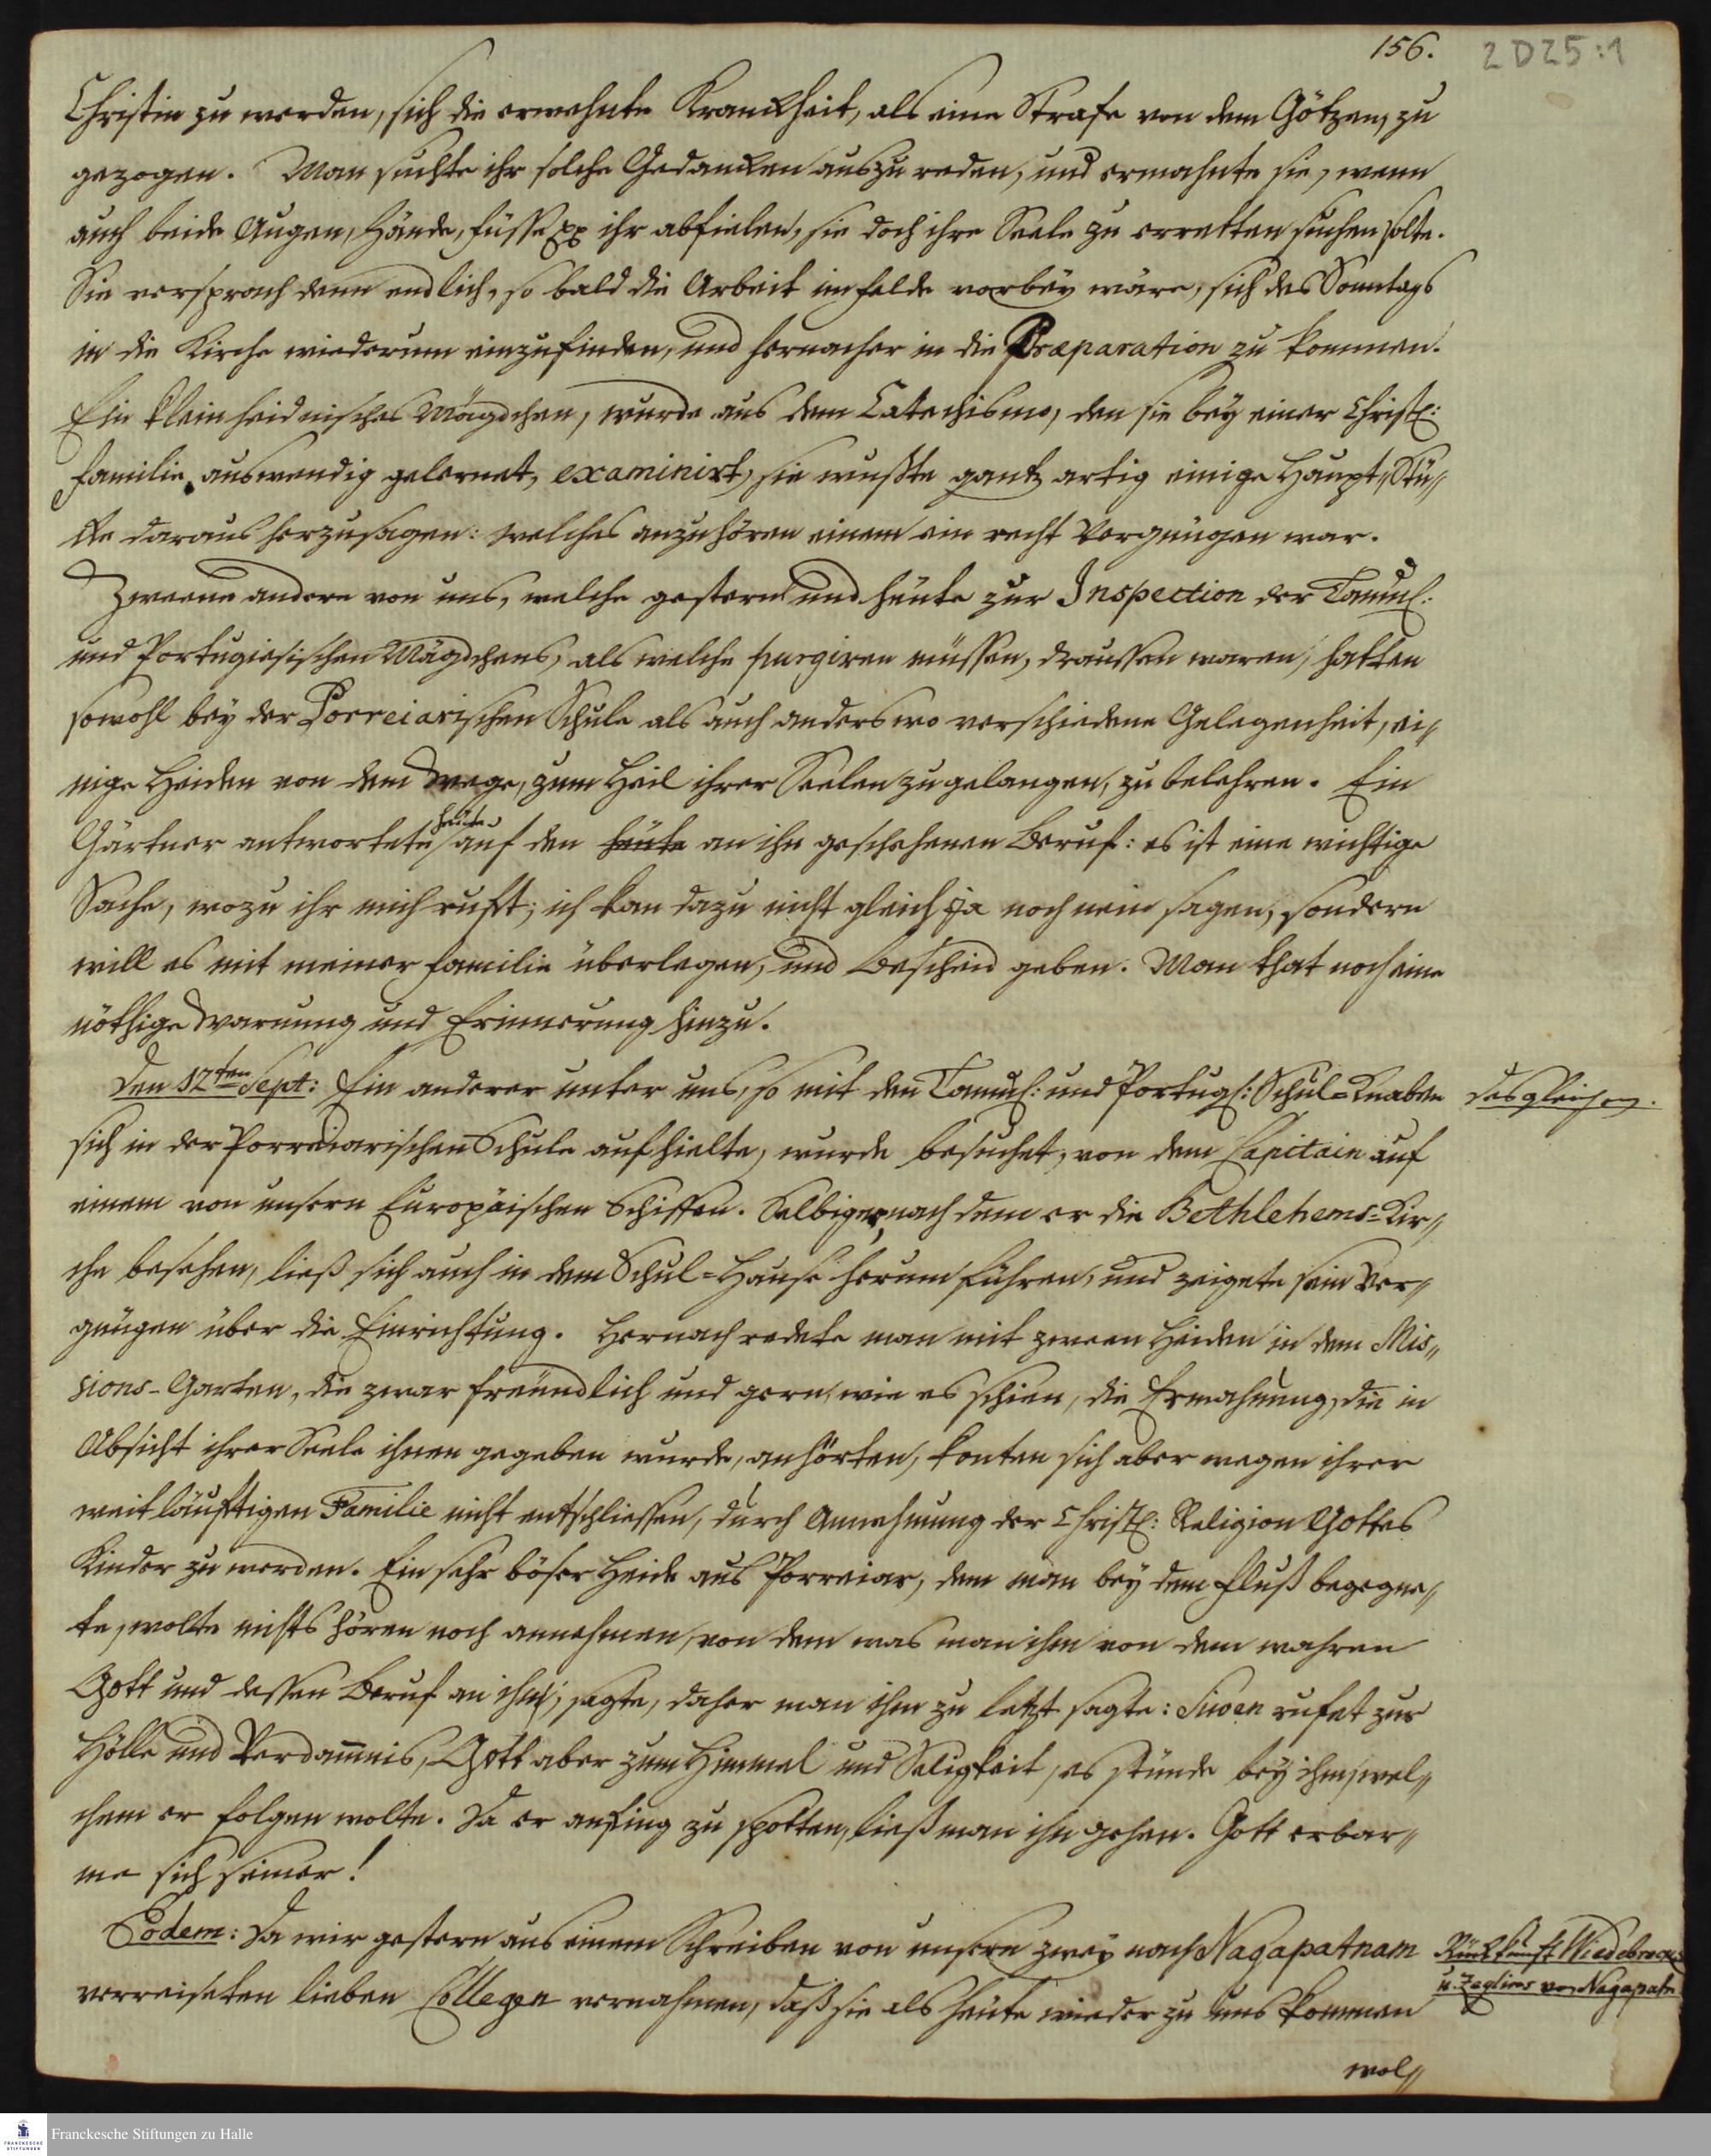 156.
2 D 25 : 1
Christin zu werden, sich die erwehnte Kranckheit, als eine Strafe von dem Götzen, zu
gezogen. Man suchte ihr solche Gedancken auszureden, und ermahnte sie, wenn
auch beide Augen, Hände, Füsse pp ihr abfielen, sie doch ihre Seele zu erretten suchen solte.
Sie versprach denn endlich, so bald die Arbeit im Felde vorbey wäre, sich des Sonntags
in die Kirche wiederum einzufinden, und hernacher in die Præparation zu kommen.
Ein klein heidnisches Mägdchen, wurde aus dem Catechismo, den sie bey einer Christl:
Familie auswendig gelernet, examinirt, sie wußte gantz artig einige Haupt-Stü-
cke daraus herzusagen: welches anzuhören einem ein recht Vergnügen war.
Zweene andere von uns, welche gestern und heute zur Inspection der Tamul:
und Portugiesischen Mägdchens, als welche purgiren müssen, draussen waren, hatten
sowohl bey der Porreiarischen Schule als auch anderswo verschiedene Gelegenheit, ei-
nige Heiden von dem Wege, zum Heil ihrer Seelen zu gelangen, zu belehren. Ein
heute
Gärtner antwortete auf den heute an ihn geschehenen Beruf: es ist eine wichtige
Sache, wozu ihr mich ruft; ich kan dazu nicht gleich ja noch nein sagen, sondern
will es mit meiner Familie überlegen, und Bescheid geben. Man that noch eine
nöthige Warnung und Erinnerung hinzu.
Den 12ten Sept: Ein anderer unter uns, so mit den Tamul: und Portug: Schul-Knaben
desgleichen.
sich in der Porreiarischen Schule aufhielte, wurde besuchet, von dem Capitain auf
einem von unsern Europäischen Schiffen. Selbiger, nachdem er die Bethlehems-Kir-
che besehen, ließ sich auch in dem Schul-Hause herum führen, und zeigete sein Ver-
gnügen über die Einrichtung. Hernach redete man mit zween Heiden in dem Mis-
sions-Garten, die zwar freundlich und gern, wie es schien, die Ermahnung, die in
Absicht ihrer Seele ihnen gegeben wurde, anhörten, konten sich aber wegen ihrer
weitläufftigen Familie nicht entschliessen, durch Annehmung der Christl: Religion Gottes
Kinder zu werden. Ein sehr böser Heide aus Porreiar, dem man bey dem Fluß begegne-
te, wolte nichts hören noch annehmen, von dem was man ihm von dem wahren
Gott und dessen Beruf an ihn, sagte, daher man ihm zu letzt sagte: Siwen rufet zur
Hölle und Verdam̅nis, Gott aber zum Himmel und Seligkeit, es stünde bey ihm, wel-
chem er folgen wolte. Da er anfing zu spotten, ließ man ihn gehen. Gott erbar-
me sich seiner!
Eodem: Da wir gestern aus einem Schreiben von unsern zwey nach Nagapatnam
Rückkunft Wiedebrocks
u. Zeglins von Nagapatn
verreiseten lieben Collegen vernahmen, daß sie als heute wieder zu uns kommen
wol-
Franckesche Stiftungen zu Halle
FRANCKESCHE STIFTUNGEN